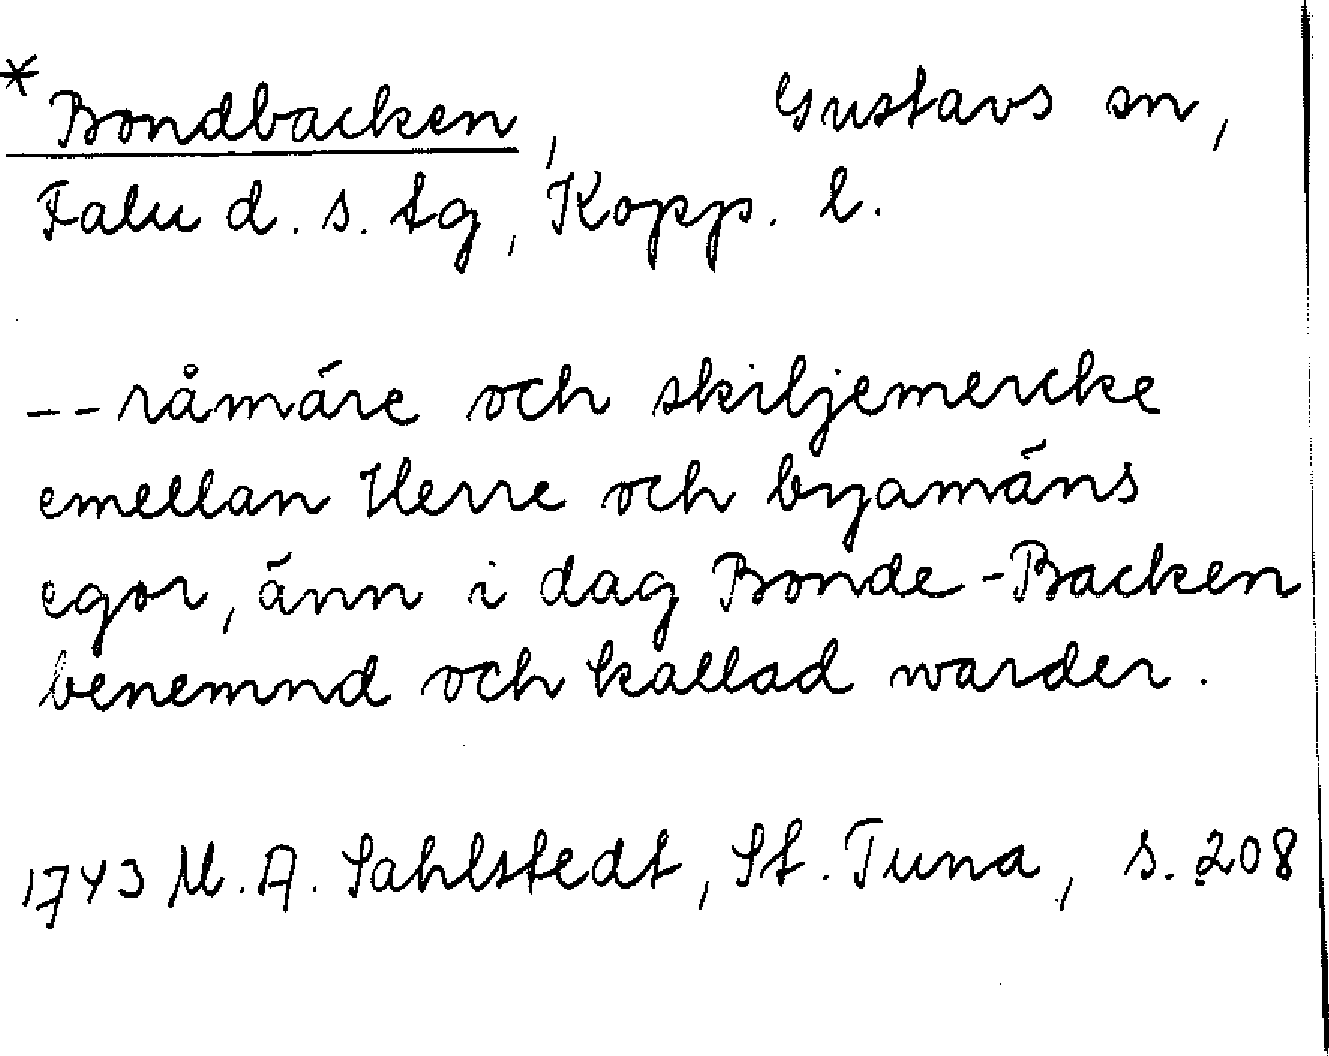 * Bondbacken, Gustavs sn,
Falu d. s. tg, Kopp. l.
-- råmäre och skiljemercke
emellan Herre och byamäns
egor, änn i dag Bonde-Backen
benemnd och kallad warder.
1743 M. A. Sahlstedt, St. Tuna, s. 208